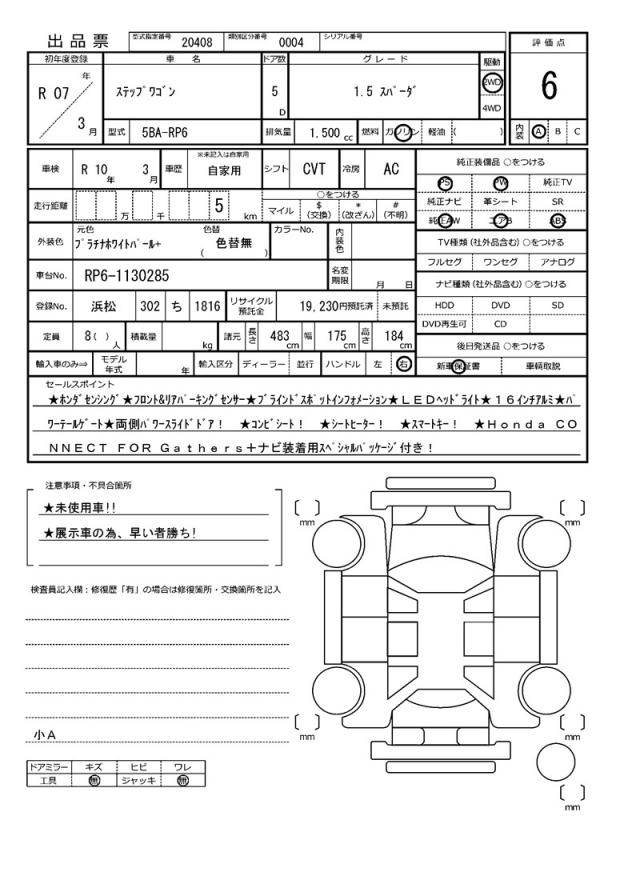 出品票 型式指定番号 20408 類別区分番号 0004 シリアル番号
評価点
初年度登録 車名 ドア数 グレード 駆動
R 07 年 3 月 ステップワゴン 5 D 1.5 スパーダ 2WD 4WD
6
型式 5BA-RP6 排気量 1,500 cc 燃料 ガソリン 軽油 ( ) 内装 A B C
車検 R 10 年 3 月 車歴 ※未記入は自家用 自家用 シフト CVT 冷房 AC
純正装備品 ○をつける
PS PW 純正TV
走行距離 万 千 5 km ○をつける
マイル $(交換) *(改ざん) #(不明)
純正ナビ 革シート SR
純正AW エアB ABS
外装色 元色 プラチナホワイトパール+ 色替 ( 色替無 ) カラーNo. 内装色
TV種類 (社外品含む) ○をつける
フルセグ ワンセグ アナログ
車台No. RP6-1130285 名変期限 月 日
ナビ種類 (社外品含む) ○をつける
登録No. 浜松 302 ち 1816 リサイクル預託金 19,230円預託済 未預託
HDD DVD SD
DVD再生可 CD
定員 8( ) 人 積載量 kg 諸元 長さ 483 cm 幅 175 cm 高さ 184 cm
後日発送品 ○をつける
輸入車のみ⇒ モデル年式 年 輸入区分 ディーラー 並行 ハンドル 左 右
新車保証書 車輌取説
セールスポイント
★ホンダセンシング★フロント&リアパーキングセンサー★ブラインドスポットインフォメーション★LEDヘッドライト★16インチアルミ★パ
ワーテールゲート★両側パワースライドドア! ★コンビシート! ★シートヒーター! ★スマートキー! ★Honda CO
NNECT FOR Gathers+ナビ装着用スペシャルパッケージ付き!
注意事項・不具合箇所
★未使用車!!
★展示車の為、早い者勝ち!
検査員記入欄:修復歴「有」の場合は修復箇所・交換箇所を記入
小A
ドアミラー キズ ヒビ ワレ
工具 無 ジャッキ 無
[ ] mm
[ ] mm
[ ] mm
[ ] mm
[ ] mm